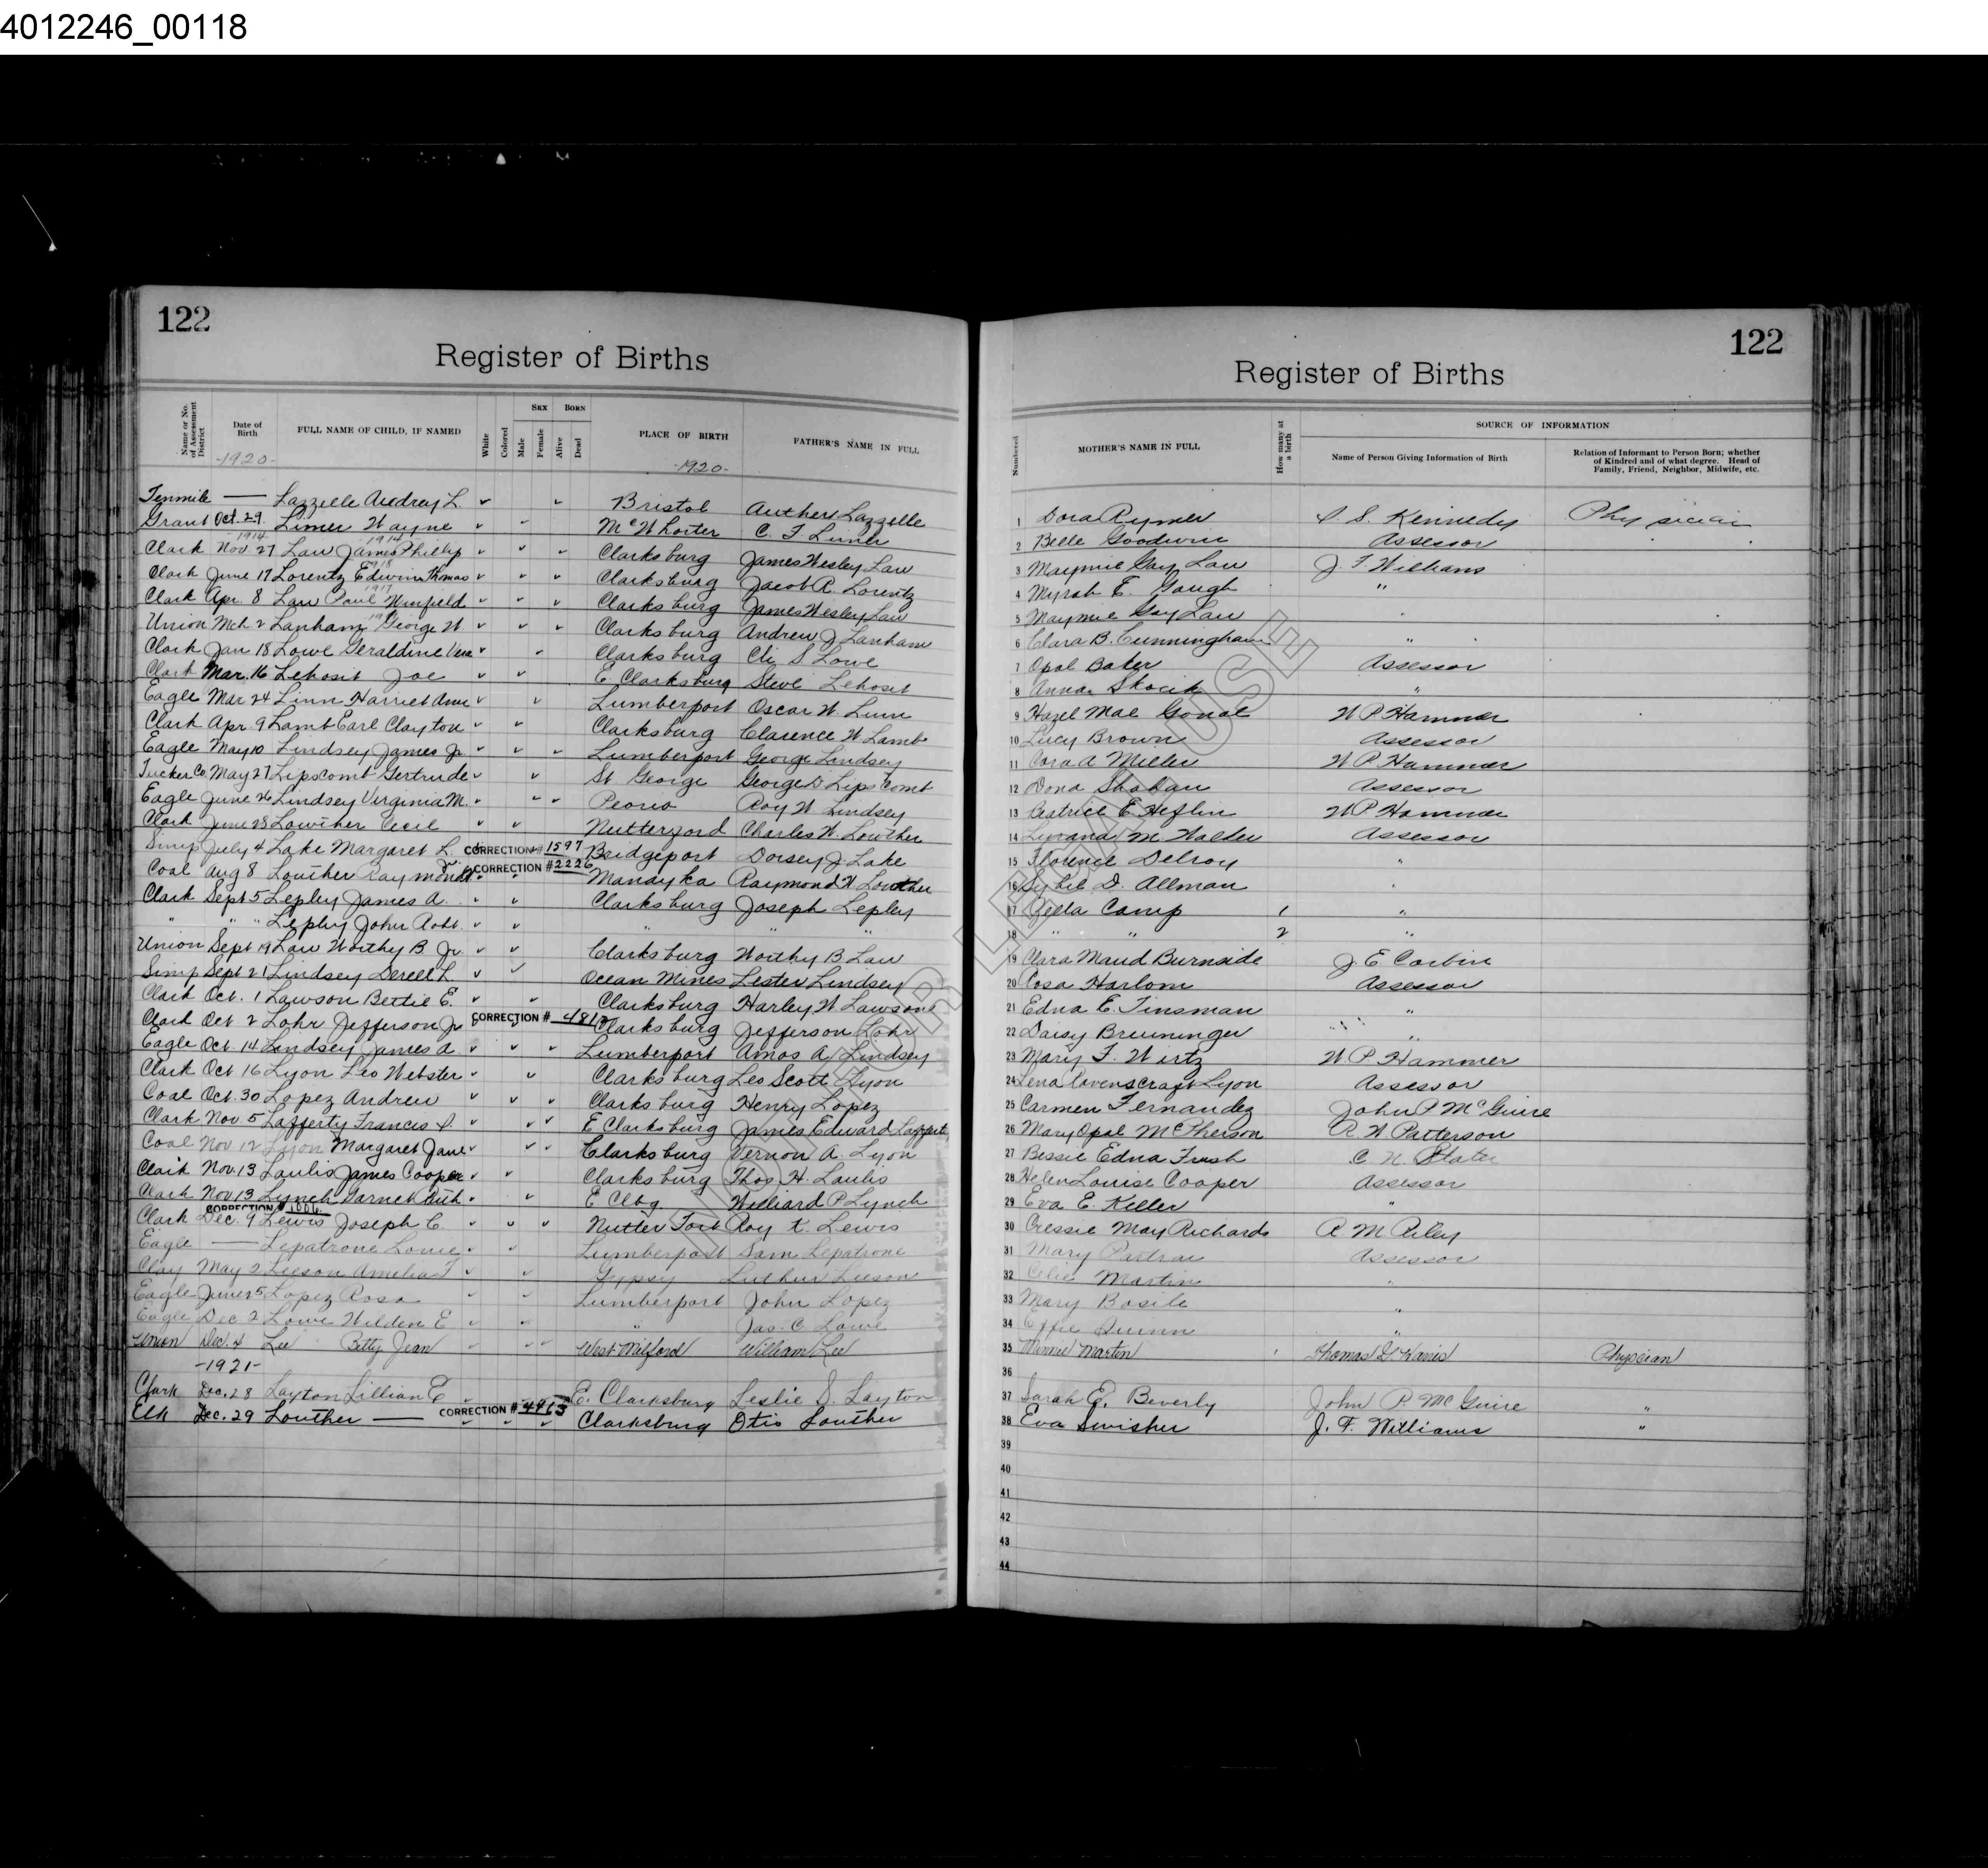 4012246_00118
122
Register of Births
Name or No. of Assessment District
Date of Birth
-1920-
FULL NAME OF CHILD, IF NAMED
White
Colored
SEX
Male
Female
BORN
Alive
Dead
PLACE OF BIRTH
-1920-
FATHER'S NAME IN FULL
Tenmile — Lazzelle Audrey L. Bristol Auther Lazzelle
Grant Oct. 29 Limer Wayne McWhorter C. F. Limer
Clark Nov. 27 1914 Law James Phillip 1914 Clarksburg James Wesley Law
Clark June 17 Lorentz Edwin Thomas 1918 Clarksburg Jacob R. Lorentz
Clark Apr. 8 Law Paul Winfield 1917 Clarksburg James Wesley Law
Union Mch 2 Lanham George W. Clarksburg Andrew J Lanham
Clark Jan 18 Lowe Geraldine Vera Clarksburg Eli S Lowe
Clark Mar. 16 Lehosit Joe E Clarksburg Steve Lehosit
Eagle Mar 24 Linn Harriet Ann Lumberport Oscar W. Linn
Clark Apr. 9 Lamb Earl Clayton Clarksburg Clarence W Lamb
Eagle May 10 Lindsey James Jr. Lumberport George Lindsey
Tucker Co. May 27 Lipscomb Gertrude St George George D Lipscomb
Eagle June 26 Lindsey Virginia M. Peora Roy W Lindsey
Clark June 28 Lowther Cecil Nutterford Charles W. Lowther
Simp July 4 Lake Margaret L. CORRECTION # 1597 Bridgeport Dorsey J Lake
Coal Aug 8 Louther Raymond Jr. CORRECTION # 2226 Mandyka Raymond W Lowther
Clark Sept 5 Lepley James A. Clarksburg Joseph Lepley
" " " Lepley John Robt. " " "
Union Sept 19 Law Worthy B Jr. Clarksburg Worthy B. Law
Simp Sept 21 Lindsey Derell L. Ocean Mines Lester Lindsey
Clark Oct. 1 Lawson Bettie E. Clarksburg Harley W Lawson
Clark Oct 2 Lohr Jefferson Jr CORRECTION # 481 Clarksburg Jefferson Lohr
Eagle Oct. 14 Lindsey James A Lumberport Amos A. Lindsey
Clark Oct 16 Lyon Leo Webster Clarksburg Leo Scott Lyon
Coal Oct. 30 Lopez Andrew Clarksburg Henry Lopez
Clark Nov 5 Lafferty Francis S. E Clarksburg James Edward Lafferty
Coal Nov 12 Lyon Margaret Jane Clarksburg Vernon A. Lyon
Clark Nov. 13 Laulis James Cooper Clarksburg Thos. H. Laulis
Clark Nov 13 Lynch Garnet Ruth E Cbg. Williard P Lynch
CORRECTION # 1006
Clark Dec. 9 Lewis Joseph C. Nutter Fort Roy K. Lewis
Eagle — Lepatrone Louie Lumberport Sam Lepatrone
Clay May 2 Leeson Amelia F Gypsy Luthur Leeson
Eagle June 25 Lopez Rosa Lumberport John Lopez
Eagle Dec 2 Lowe Wilden E " Jas. C Lowe
Union Dec. 4 Lee Betty Jean West Milford William Lee
-1921-
Clark Dec. 28 Layton Lillian E. E. Clarksburg Leslie D. Layton
Elk Dec. 29 Louther — CORRECTION # 4963 Clarksburg Otis Louther
122
Register of Births
Numbered
MOTHER'S NAME IN FULL
How many at a birth
SOURCE OF INFORMATION
Name of Person Giving Information of Birth
Relation of Informant to Person Born; whether of Kindred and of what degree. Head of Family, Friend, Neighbor, Midwife, etc.
1 Dora Rymer S. S. Kennedy Physician
2 Belle Goodwin Assessor
3 Maymie Gay Law J. F. Williams
4 Myrah E. Gough "
5 Maymie Gay Law "
6 Clara B. Cunningham "
7 Opal Baker Assessor
8 Anna Skocik "
9 Hazel Mae W P Hammer
10 Lucy Brown Assessor
11 Cora A Miller W P Hammer
12 Dona Shahan Assessor
13 Beatrice E Heflin W P Hammer
14 M Walker Assessor
15 Florence Delroy "
16 Sybil D. Allman "
17 Zella Camp 1 "
18 " " 2 "
19 Clara Maud Burnside J. E. Corbin
20 Rosa Harlom Assessor
21 Edna E. Tinsman "
22 Daisy Breuninger "
23 Mary F. Wirtz W P. Hammer
24 Lena Ravenscraft Lyon Assessor
25 Carmen Fernandez John P McGuire
26 Mary Opal McPherson R. W Patterson
27 Bessie Edna Trush C. N. Slater
28 Helen Louise Cooper Assessor
29 Eva E. Keller "
30 Cressie May Richards R. M Riley
31 Mary Assessor
32 Celie Martin "
33 Mary Basile "
34 Effie Quinn "
35 Minnie Martin Thomas Physician
36
37 Sarah E. Beverly John P. McGuire "
38 Eva Swisher J. F. Williams "
39
40
41
42
43
44
NOT FOR LEGAL USE